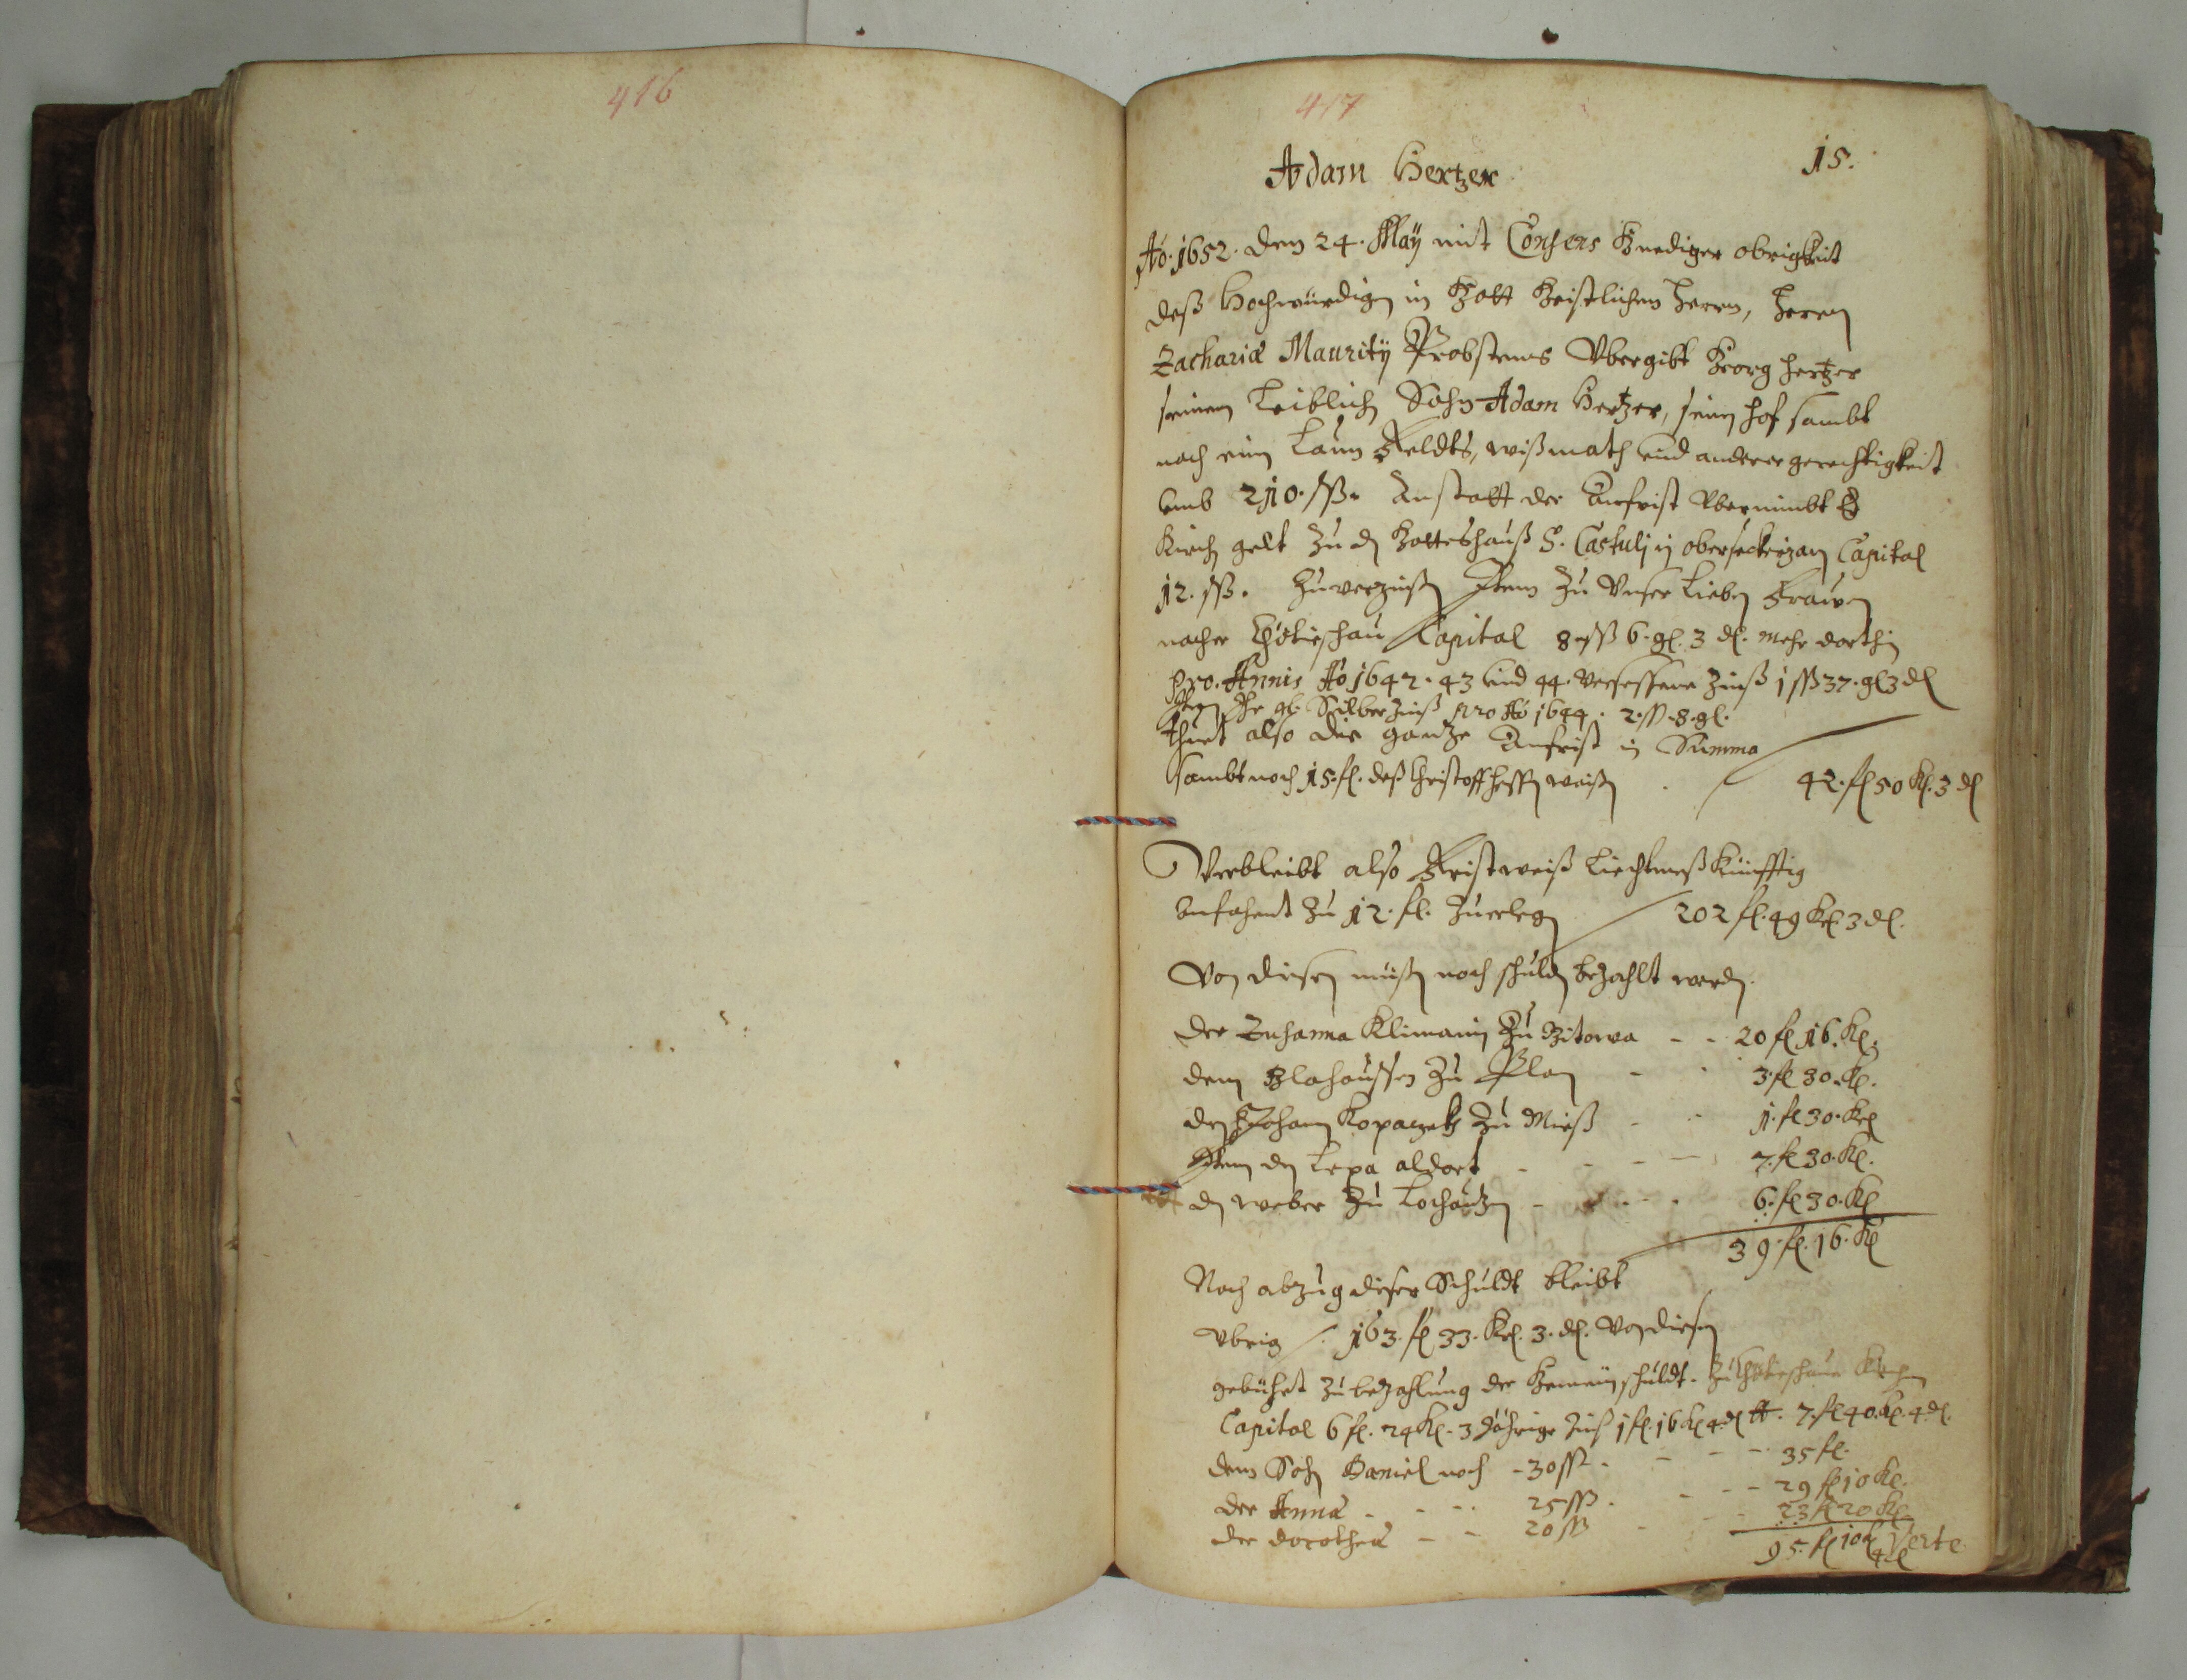 416
417
Adam Hertzer 15.
Ao. 1652. den 24. Maÿ mit Consens Gnediger obrigkeit
deß Hochwürdigen in Gott Geistlichen Herrn, Herrn
Zachariæ Mauritÿ Probstens Vbergibt Georg Hertzer
seinem Leiblich Sohn Adam Hertzer, seinen Hof sambt
noch ein Feldts, wißmath und anderer gerechtigkeit
umb 210 ßß. Anstatt der Anfrist Vbernimbt Er
Kirch gelt Zu dem Gotteshauß S. Castulj in Capital
12. ßß. Zuverzinsen Item Zu Vnser Lieben Frauen
nacher Chotieschau Capital 8 ßß 6. gl. 3 dl. mehr dorthin
pro. Annis Ao 1642. 43 und 44. Versessene Zinß 1 ßß 37. gl 3 dl
Silber Zinß pro Ao 1644. 2. ßß. 8. gl.
thuet also die gantze Anfrist in Summa
sambt noch 15. fl. deß Christoff waisen 42. fl 50 Kl. 3 dl
Verbleibt also Fristweiß Liechtmeß Künfftig
anfahent Zu 12. fl. Zuerlegen 202 fl. 49 Kl. 3 dl.
Von diesen müssen noch schulden bezahlt werden.
der Susanna Klimanin Zu Zitowa - - 20 fl 16. Kl.
dem Zu Plan - - 3. fl 30. Kl.
dem Johann Kopaczek Zu Mieß - - 1. fl 30. Kl
Item dem Lepa aldort - - - - 7. fl 30. Kl.
dem weber Zu Lochautzen - - - - 6. fl 30. Kl
39. fl. 16. Kl
Nach abzug dieser Schuldt bleibt
Vbrig 163. fl 33. Kl. 3. dl. Von diesen
gebührt Zu bezahlung der Gemein schuldt. Zu Chotieschau Kirchen
Capital 6 fl. 24 Kl. 3 Jährige Zinß 1 fl. 16 Kl 4 dl 7. fl 40. Kl. 4. dl.
dem Sohn Daniel noch - 30 ßß. - - - 35 fl.
der Anna - - - 25 ßß. - - - 29 fl 10 Kl.
der dorothea - - 20 ßß - - - 23 fl 20 Kl
95. fl 10 Kl 4 dl Verte